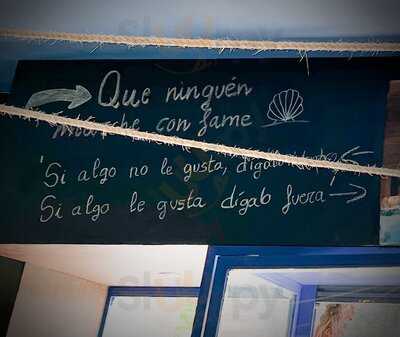 Que ninguén
marche con fame
'Si algo no le gusta, dígalo dentro
Si algo le gusta dígalo fuera